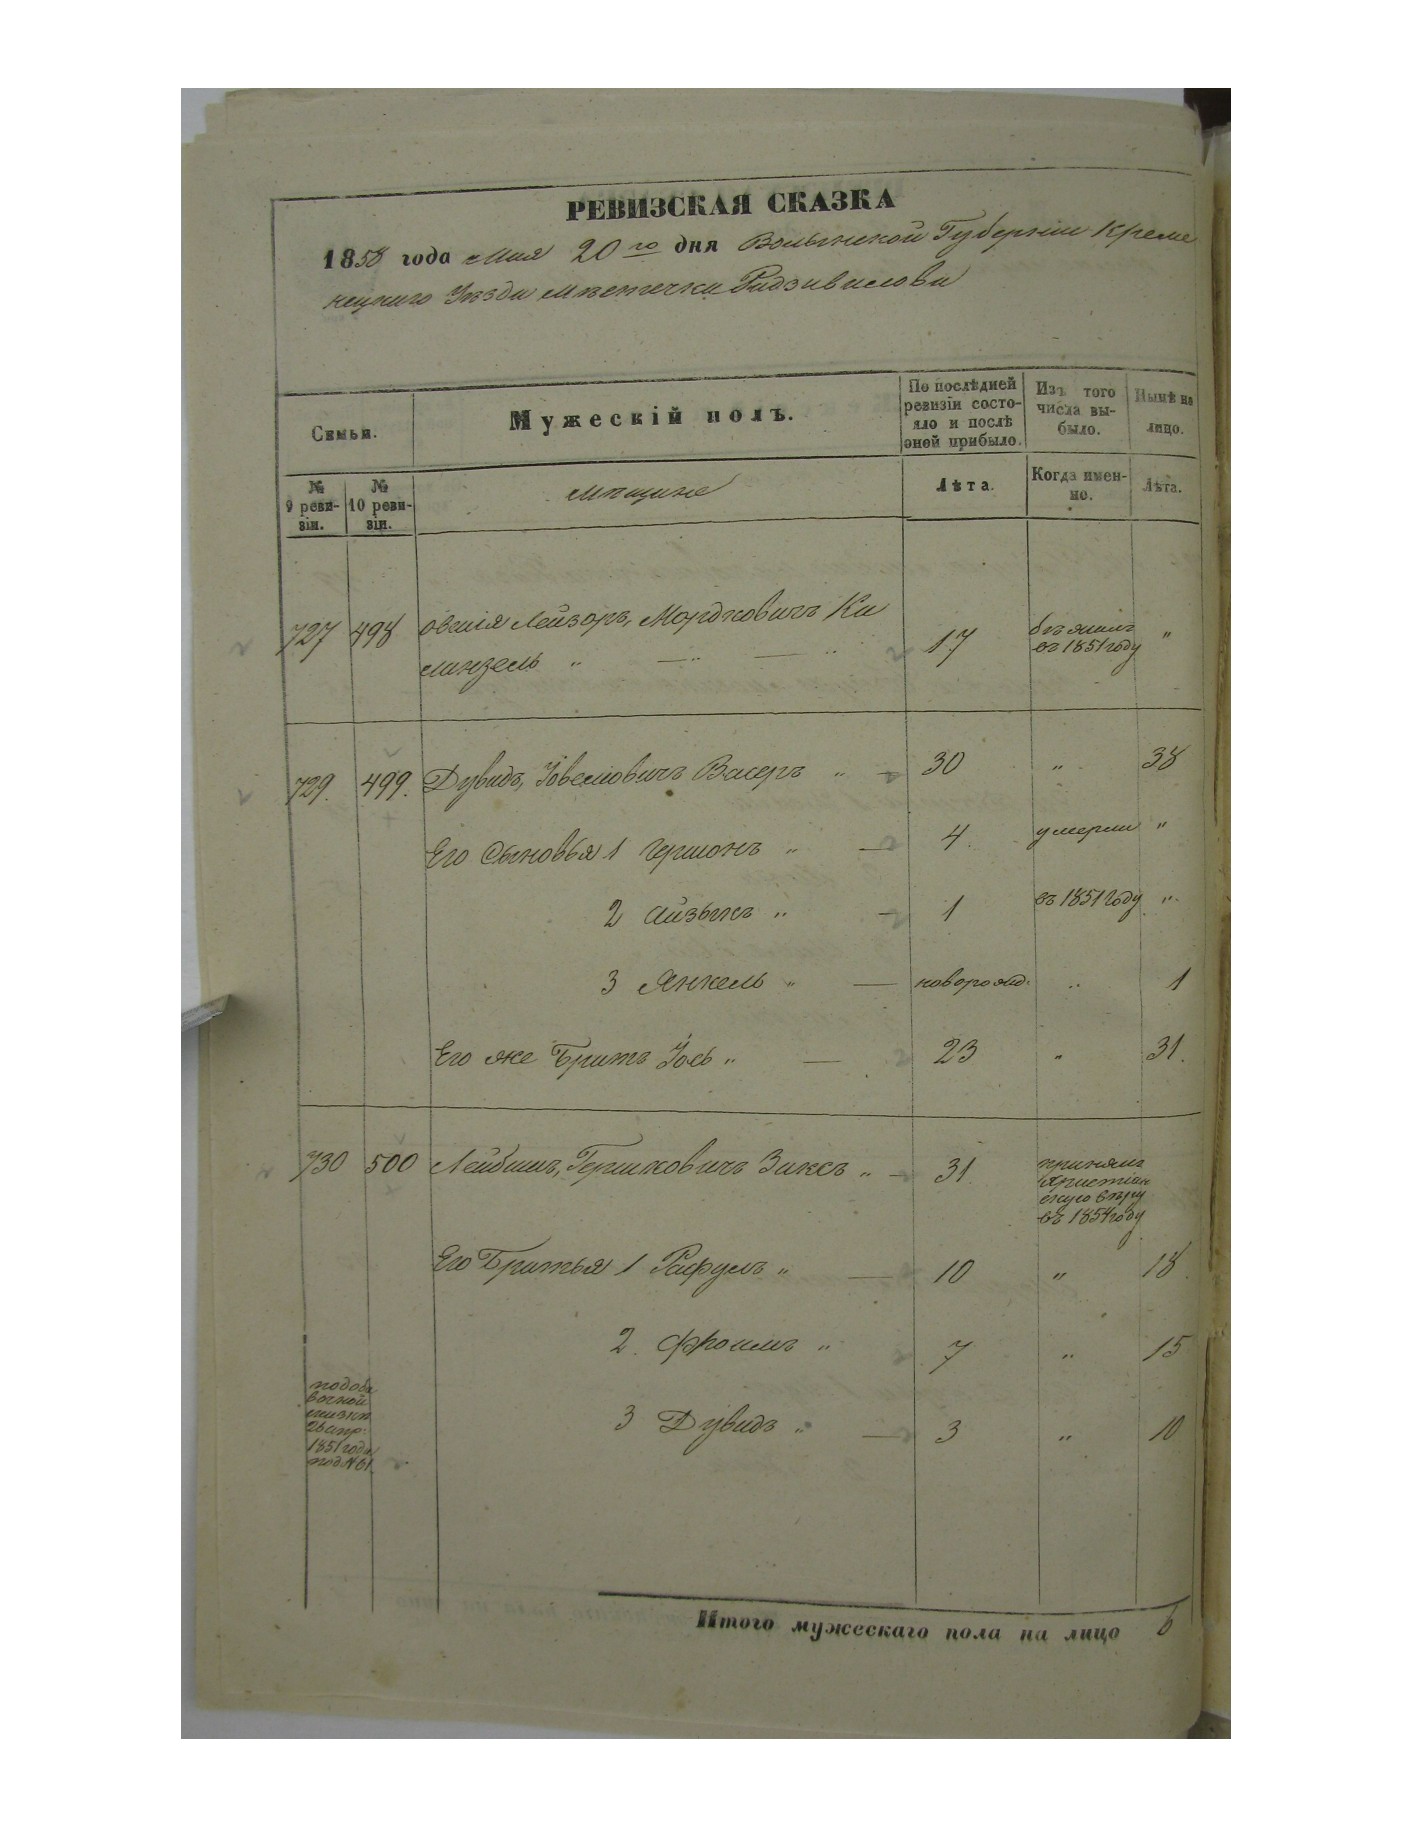 РЕВИЗСКАЯ СКАЗКА
1858 года Мая 20го дня Волынской Губернiи Креме
нецкаго Уѣзда мѣстечка Радзивилова
Семьи.
Мужескiй полъ.
По послѣдней ревизiи состо-
яло и послѣ оной прибыло.
Изъ того числа вы-
было.
Нынѣ на лицо.
№ 9 реви-
зiи.
№ 10 реви-
зiи.
Мѣщане
Лѣта.
Когда имен-
но.
Лѣта.
727 498 Овшiя Лейзоръ, Мордковичъ Ки 17 бѣжалъ „
линзель „ — „ — „ въ 1851 году
729. 499. Дувидъ, Iовелiовичъ Васеръ „ — 30 „ 38
Его Сыновья 1 Гершонъ „ — 4 умерли „
2 Айзыкъ „ — 1 въ 1851 Году „
3 Янкель „ — новорожд: „ 1
Его же Братъ Iось „ — 23 „ 31.
730 500 Лейбишъ, Гершковичъ Заксъ „ — 31 принялъ
христiан
скую вѣру
въ 1854 году
Его Братья 1 Рафулъ „ — 10 „ 18
2. Фроимъ „ 7 „ 15
3 Дувидъ „ — 3 „ 10
по доба
вочной
сказки
1851 года
под N 61
Итого мужескаго пола на лицо 6